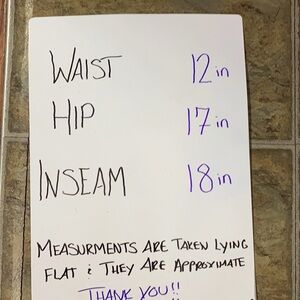 WAIST 12in
HIP 17in
INSEAM 18in
MEASURMENTS ARE TAKEN LYING
FLAT & THEY ARE APPROXIMATE
THANK YOU!!